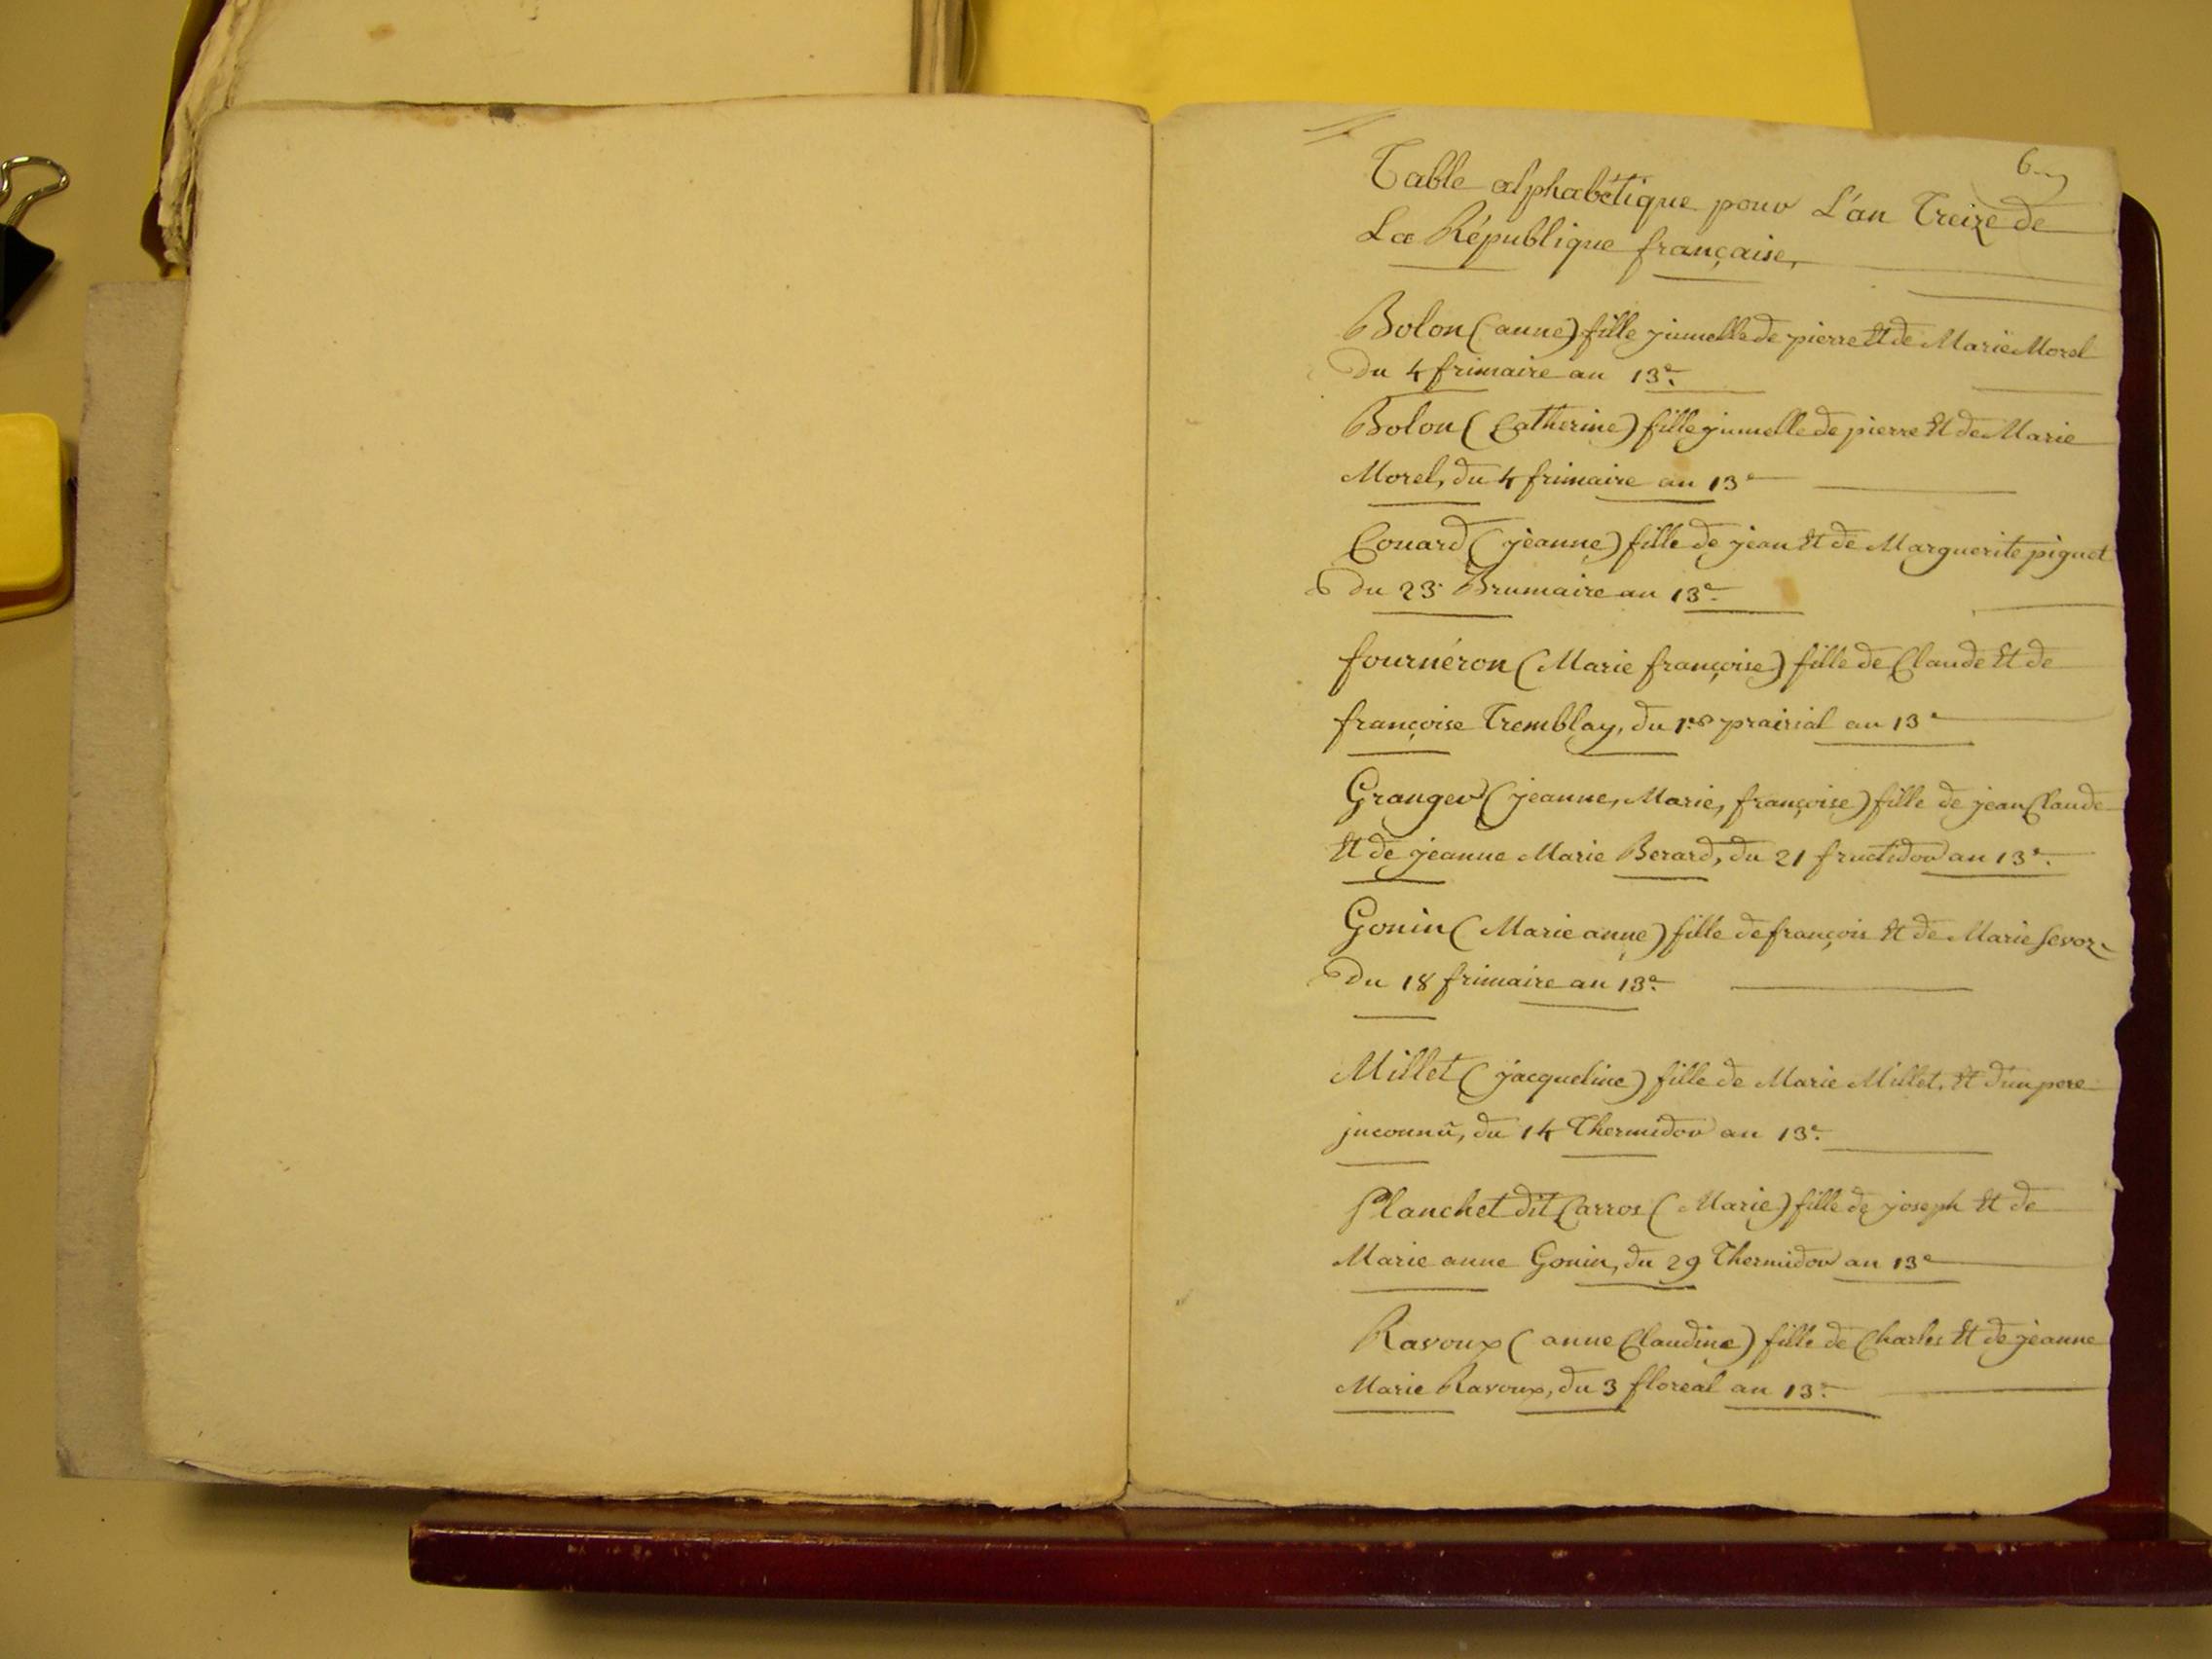 Table alphabétique pour L'an Treize de
La République française,
Bolon (anne) fille jumelle de pierre Et de Marie Morel
Du 4 frimaire an 13e.
Bolon (Catherine) fille jumelle de pierre Et de Marie
Morel, du 4 frimaire an 13e
Couard (jeanne) fille de jean Et de Marguerite piquet
Du 23 Brumaire an 13e.
fournéron (Marie françoise) fille de Claude Et de
françoise Tremblay, du 1er prairial an 13e
Granger (jeanne, Marie, françoise) fille de jean Claude
Et de jeanne Marie Berard, du 21 fructidor an 13e.
Gonin (Marie anne) fille de françois Et de Marie Sevoz
Du 18 frimaire an 13e.
Millet (jacqueline) fille de Marie Millet. Et d'un pere
jnconnû, du 14 Thermidor an 13e.
Planchet dit Carros (Marie) fille de joseph Et de
Marie anne Gonin, du 29 Thermidor an 13e
Ravoux (anne Claudine) fille de Charles Et de jeanne
Marie Ravoux, du 3 floreal an 13e.